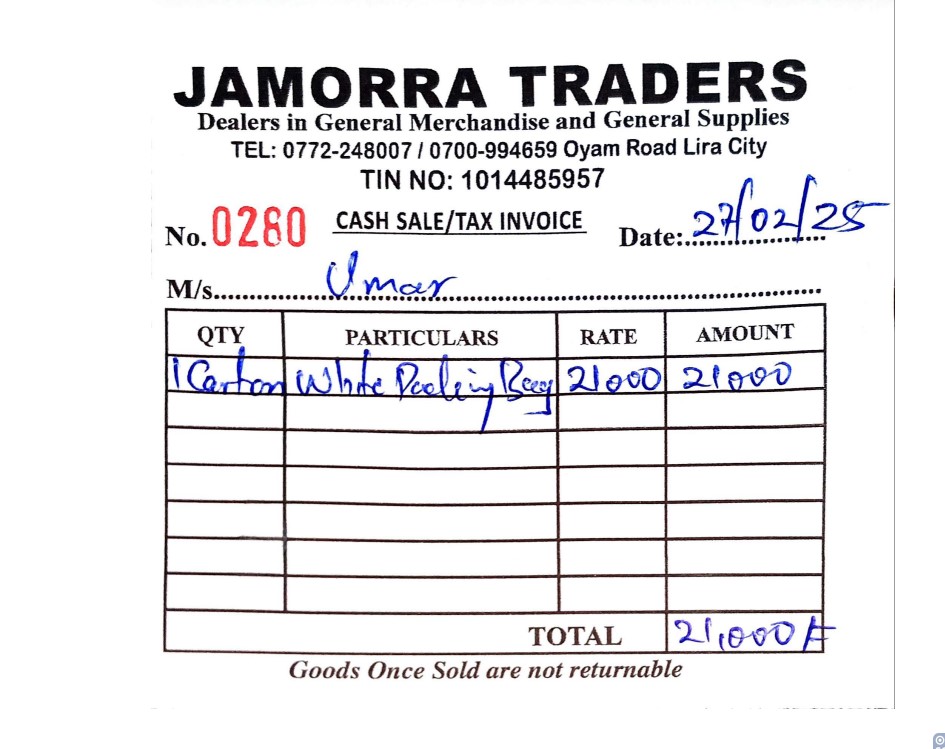 JAMORRA TRADERS
Dealers in General Merchandise and General Supplies
TEL: 0772-248007 / 0700-994659 Oyam Road Lira City
TIN NO: 1014485957
No. 0280 CASH SALE/TAX INVOICE Date: 27/02/25
M/s Umar
QTY PARTICULARS RATE AMOUNT
1 Carton White Packing Bag 21000 21000
TOTAL 21,000/=
Goods Once Sold are not returnable